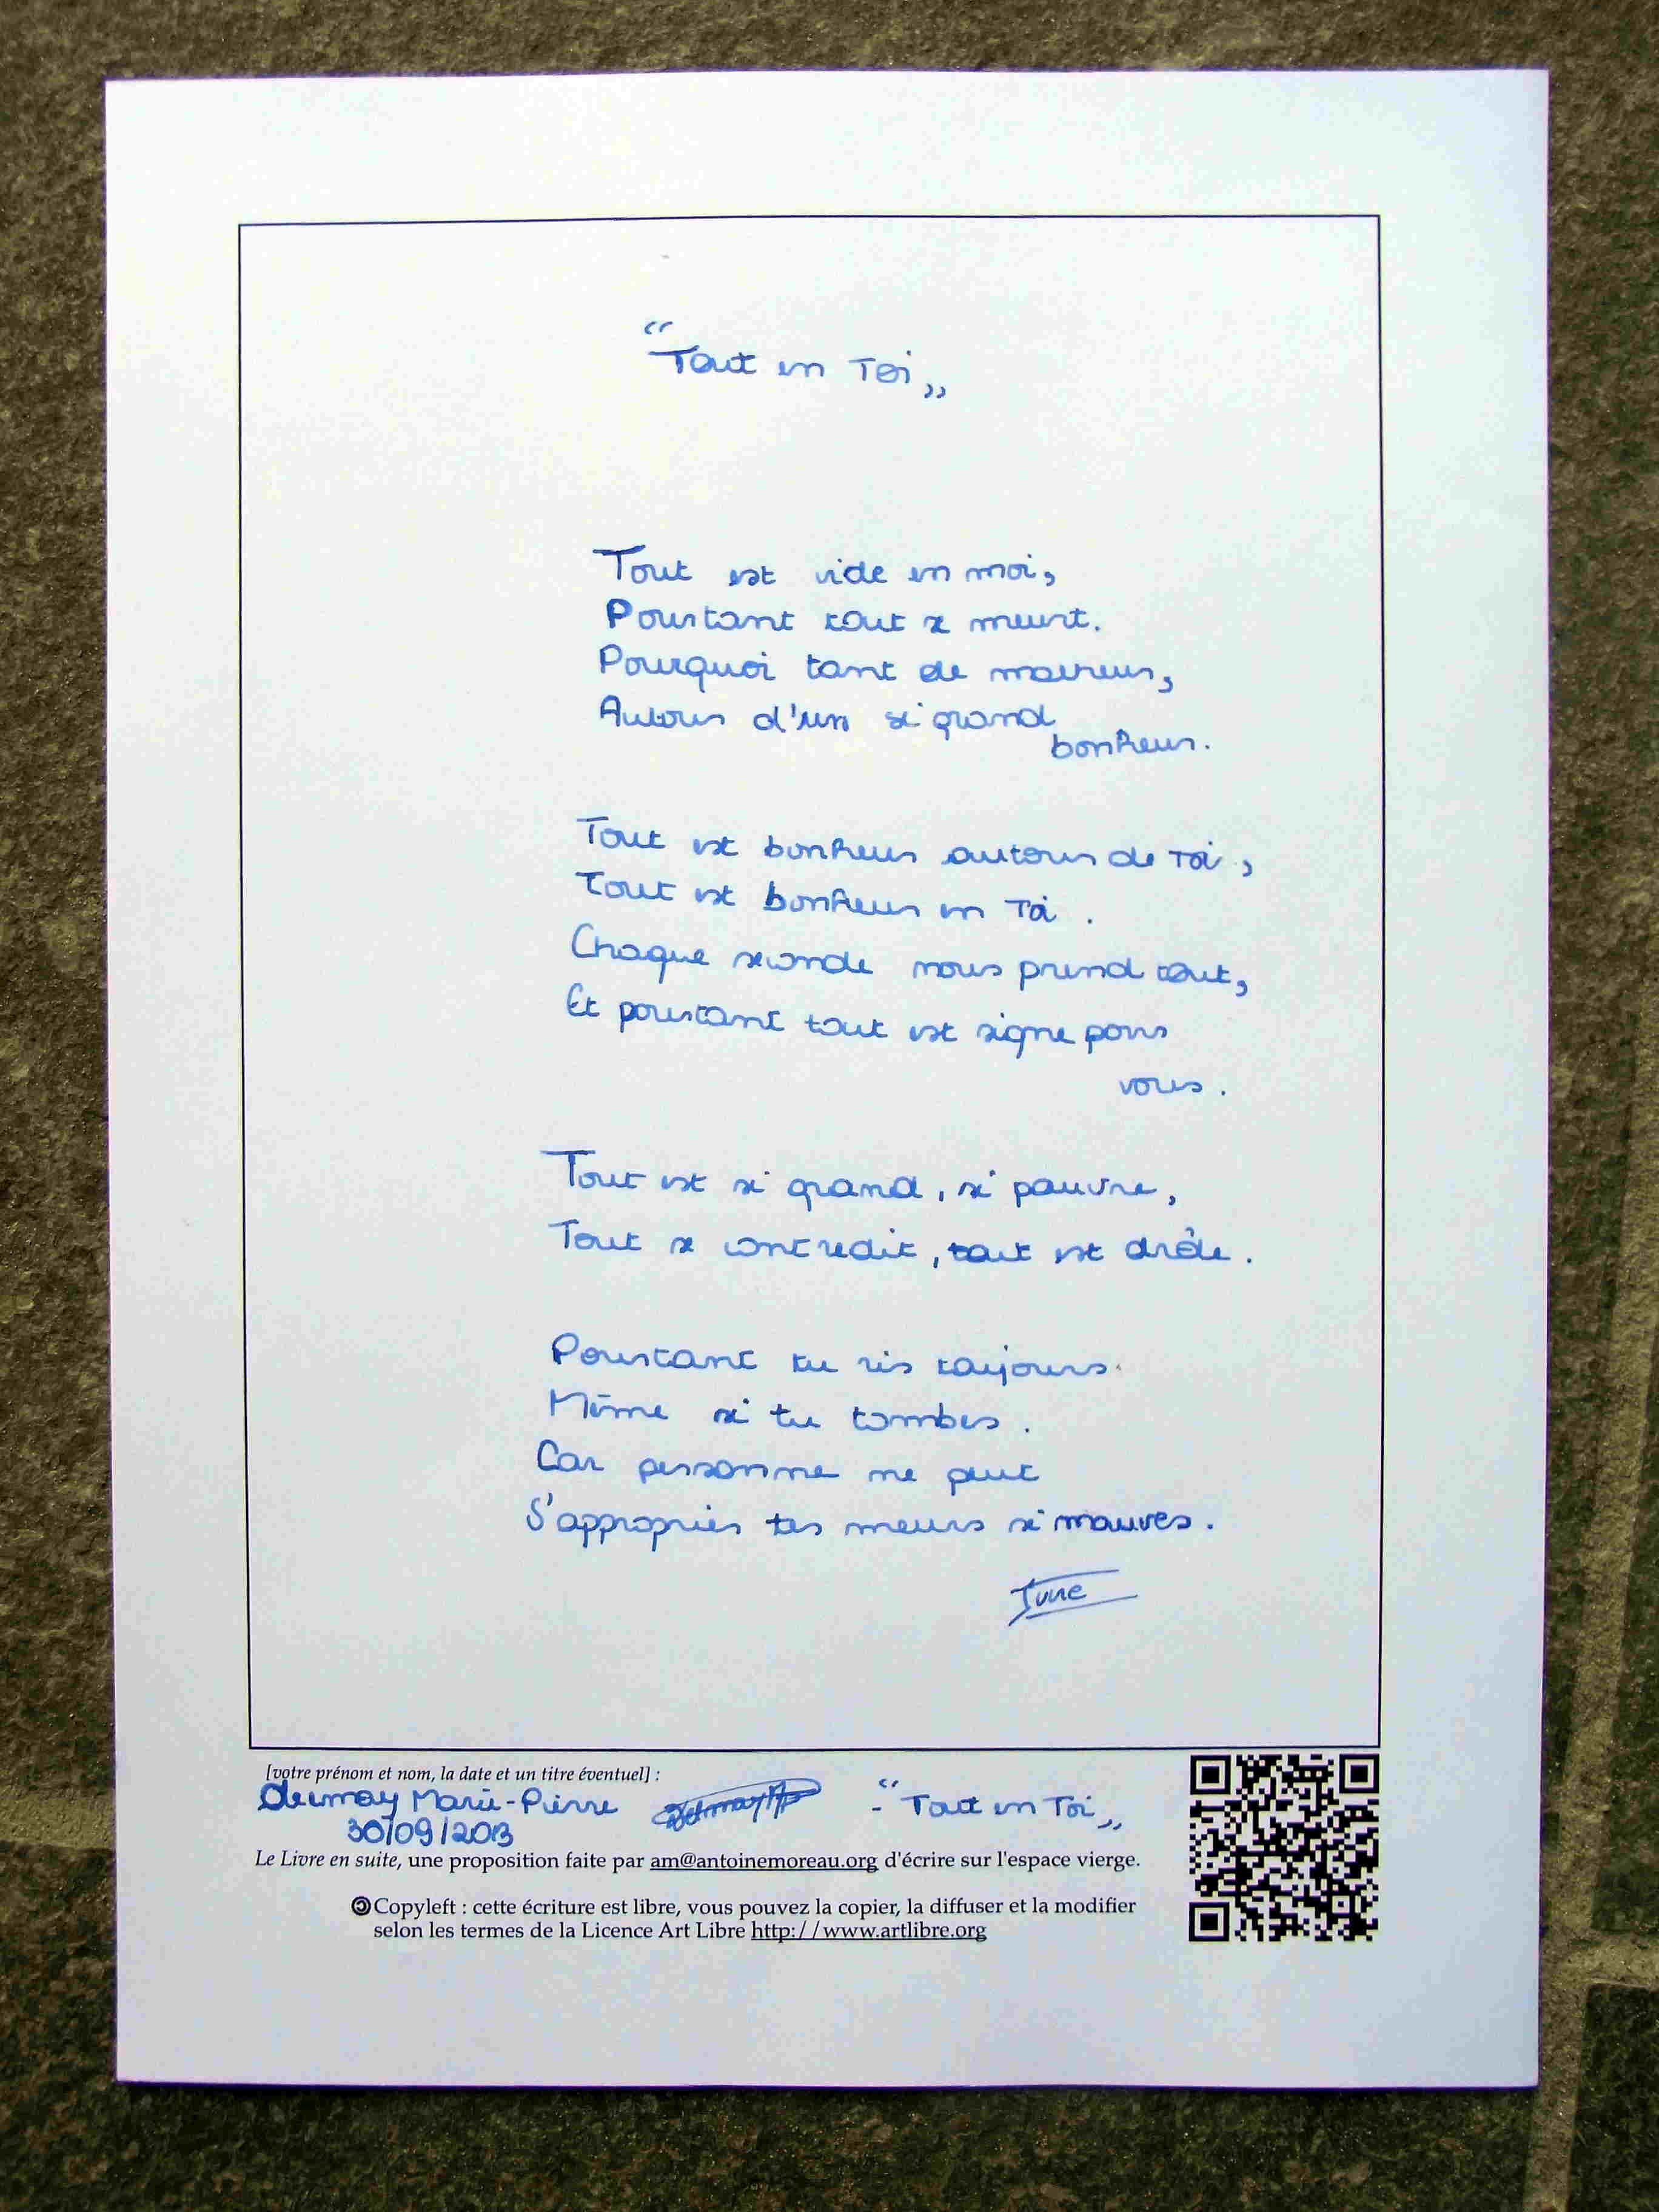 “Tout en Toi„
Tout est vide en moi,
Pourtant tout se meurt.
Pourquoi tant de malheurs,
Autour d'un si grand
bonheur.
Tout est bonheur autour de Toi,
Tout est bonheur en Toi.
Chaque seconde nous prend tout,
Et pourtant tout est signe pour
vous.
Tout est si grand, si pauvre,
Tout se contredit, tout est drôle.
Pourtant tu ris toujours.
Même si tu tombes.
Car personne ne peut
S'approprier tes meurs si mauves.
June
[votre prénom et nom, la date et un titre éventuel] :
Marie-Pierre - “Tout en Toi„
30/09/2013
Le Livre en suite, une proposition faite par am@antoinemoreau.org d'écrire sur l'espace vierge.
Copyleft : cette écriture est libre, vous pouvez la copier, la diffuser et la modifier
selon les termes de la Licence Art Libre http://www.artlibre.org